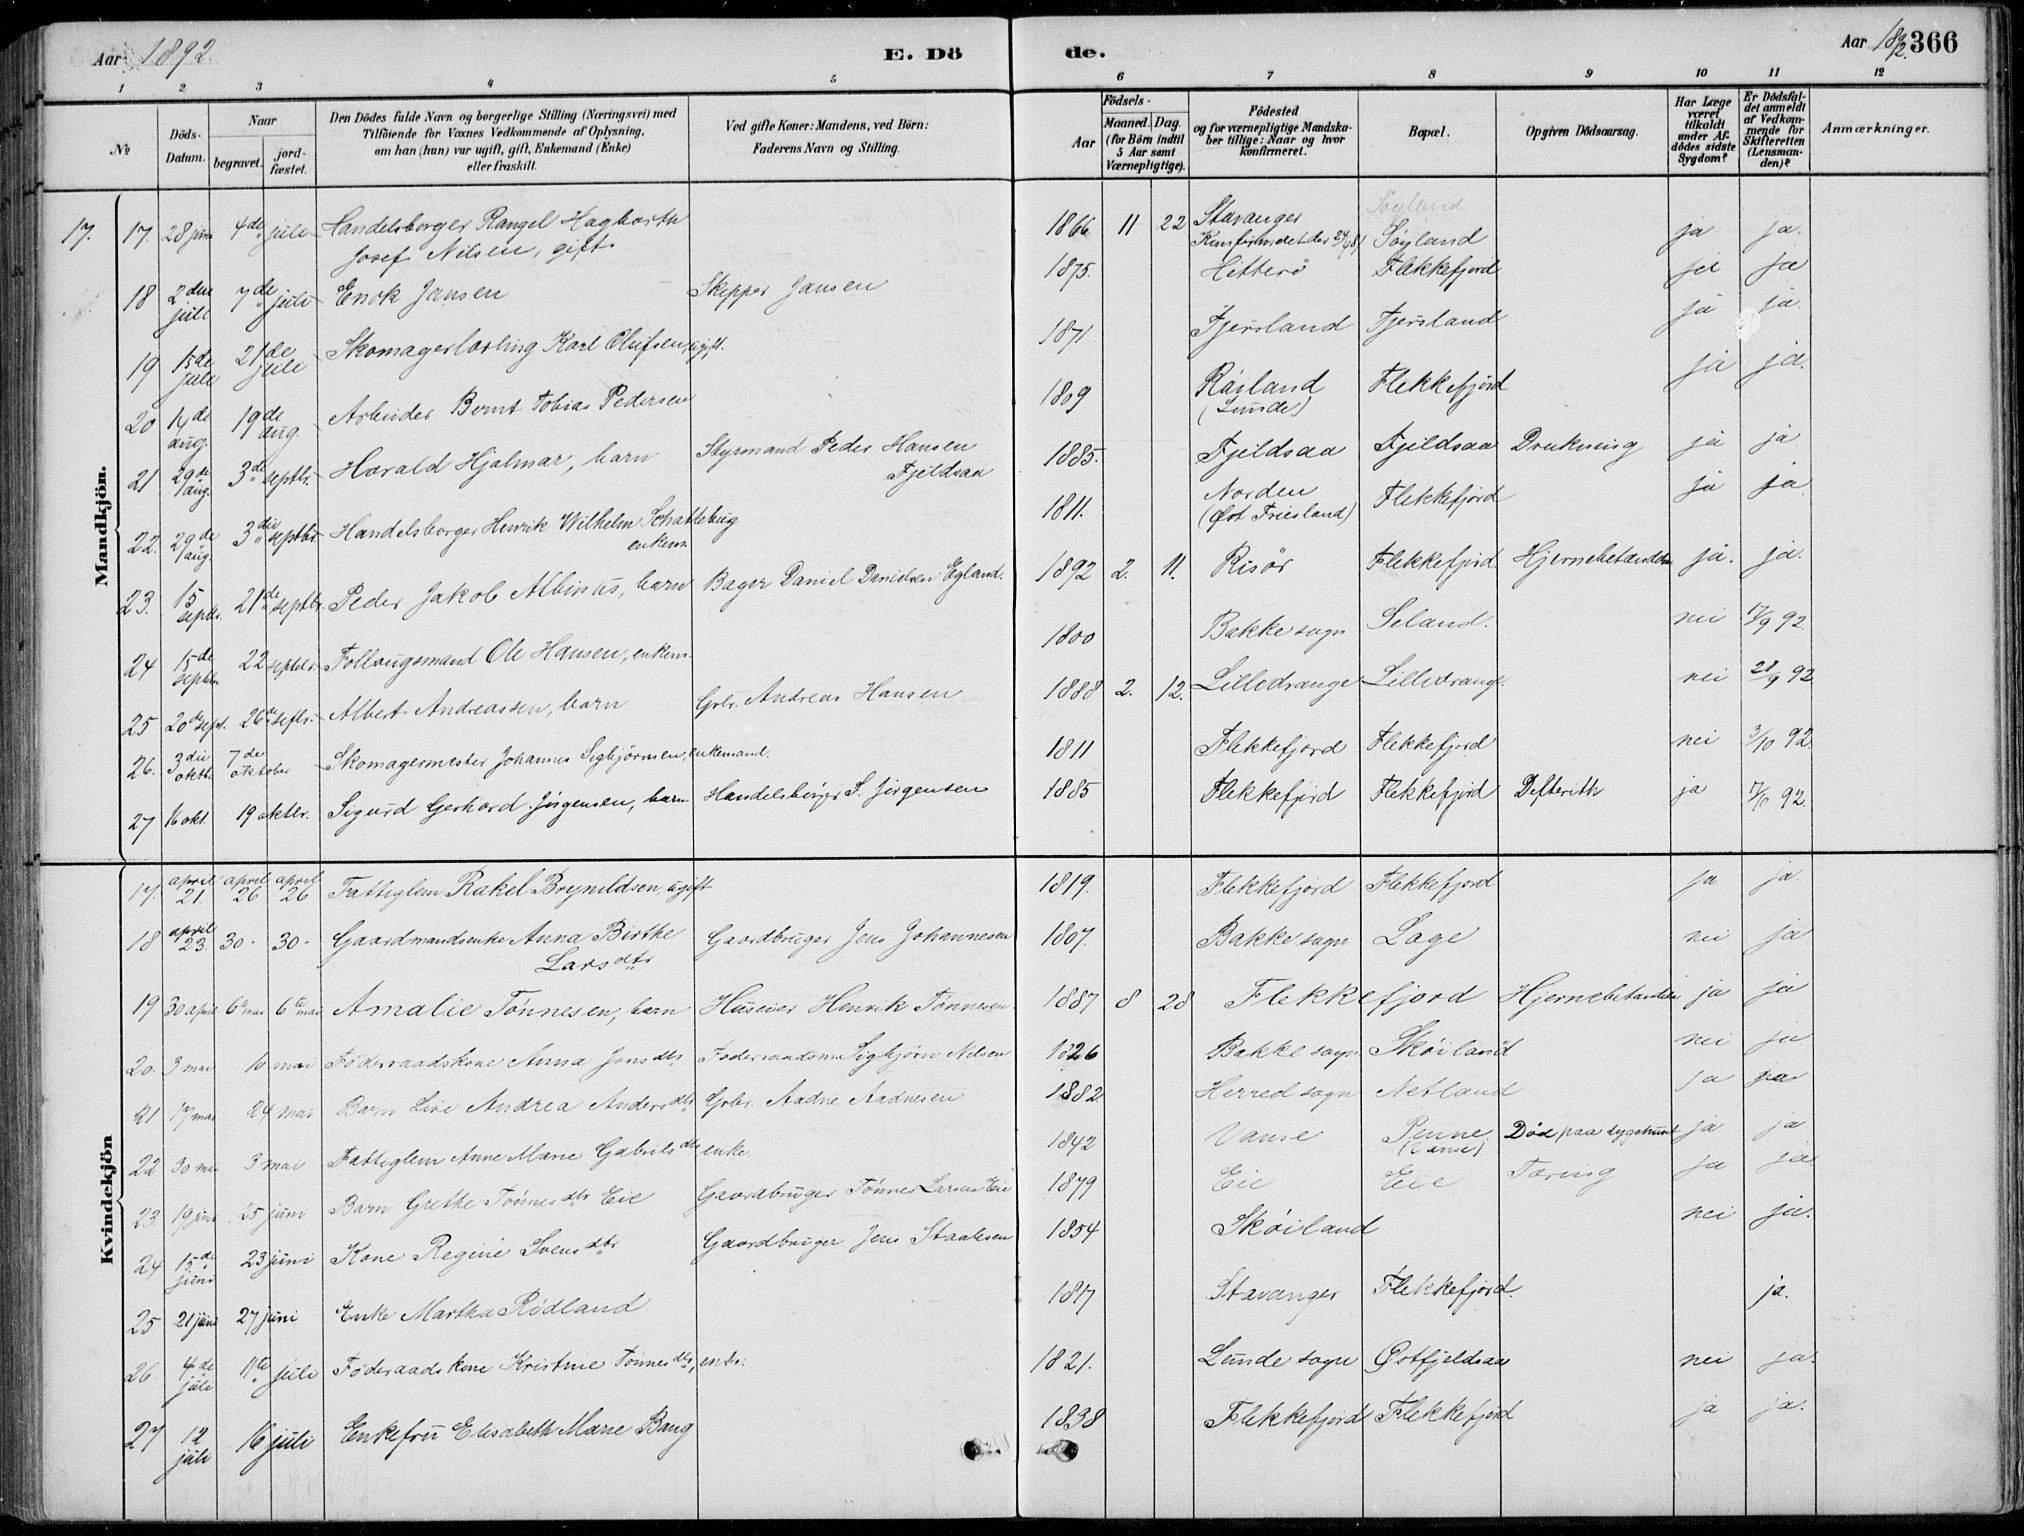 Aar 1892.
E. Döde.
Aar 1892. 366
1 2 3 4 5 6 7 8 9 10 11 12
№
Döds-Datum.
Naar
begravet.
jordfæstet.
Den Dödes fulde Navn og borgerlige Stilling (Næringsvei) med
Tilföiende for Voxnes Vedkommende af Oplysning,
om han (hun) var ugift, gift, Enkemand (Enke)
eller fraskilt.
Ved gifte Koner: Mandens, ved Börn:
Faderens Navn og Stilling.
Födsels-
Aar
Maaned. Dag.
(for Börn indtil
5 Aar samt
Værnepligtige).
Födested
og for værnepligtige Mandskaber tillige: Naar og hvor
konfirmeret.
Bopæl.
Opgiven Dödsaarsag.
Har Læge
været
tilkaldt
under Afdödes sidste
Sygdom?
Er Dödsfaldet anmeldt
af Vedkommende for
Skifteretten
(Lensmanden)?
Anmærkninger.
Mandkjön.
17. 17. 28 juni 4de juli Handelsborger Rangel Hagbarth 1866 11 22 Stavanger Søyland ja ja.
Josef Nilsen, gift
18 2den juli 7de juli Enok Jansen Skipper Jansen 1875. Hitterø Flekkefjord ja ja
19 15de juli 21de juli Skomagerlærling Karl Olufsen, ugift. 1871. Fjersland Fjersland ja ja.
20 14de aug. 19de aug. Arbeider Bernt Tobias Pedersen 1809 (Lunde) Flekkefjord ja ja.
21 29de aug. 3de septbr. Harald Hjalmar, barn Styrmand Peder Hansen Fjeldsaa 1885. Fjeldsaa Fjeldsaa Drukning ja ja
22. 29de aug. 3die septbr. Handelsborger Henrik Wilhelm enkem. 1811. Norden (Øst Friesland) Flekkefjord ja ja
23. 15 septbr. 21de septbr. Peder Jakob Albinus, barn Bager Daniel Danielsen Egland. 1892 2. 11. Risør Flekkefjord ja. ja.
24 15de septbr. 22 septbr. Ole Hansen, enkem. 1800 Bakke sogn Seland. nei 17/9 92.
25 20de sept. 26de septbr. Albert Andreassen, barn Gbr. Andreas Hansen 1888 2. 12. Lilledrange Lilledrange nei 28/9 92
26. 3die oktbr. 7de oktober Skomagermester Johannes Sigbjørnsen, enkemand. 1811 Flekkefjord Flekkefjord nei 3/10 92.
27 16 okt. 19 oktbr. Sigurd Gerhard Jørgensen, barn Handelsborger S. Jørgensen 1885 Flekkefjord Flekkefjord Difterith ja 17/10 92.
Kvindekjön
17. april 21. april 26 april 26 Fattiglem Rakel Brynildsen, ugift 1819. Flekkefjord Flekkefjord ja ja.
18 april 23. 30. 30. Gaardmandsenke Anna Birthe Larsdtr Gaardbruger Jens Johannesen 1807. Bakke sogn Loge nei ja
19 30 april 6te mai 6te mai Amalie Tønnesen, barn Huseier Henrik Tønnesen 1887 8 28 Flekkefjord ja ja
20. 3 mai 10 mai Føderaadskone Anna Jensdtr Føderaadsm. Sigbjørn Nilsen 1826 Bakke sogn Skøiland nei ja
21 17 mai 24 mai Barn Lise Andrea Andersdtr Gbr. Aadne Aadnesen 1882 Herred sogn Netland ja ja
22 30 mai 3 mai Fattiglem Anne Marie Gabrielsdtr enke. 1842 Vanse Penne (Vanse) Død paa sygehuset ja ja
23. 19 juni 25 juni Barn Grethe Tønnesdtr Eie Gaardbruger Tønnes Larsen Eie 1879 Eie Eie Tæring ja ja
24 15de juni 23 juni Kone Regine Svensdtr Gaardbruger Jens Staalesen 1854 Skøiland nei ja.
25 21 juni 27 juni Enke Martha Rødland 1817 Stavanger Flekkefjord. ja.
26. 4de juli 11te juli Føderaadskone Kristine Tønnesdtr, enke. 1821. Lunde sogn Østfjeldsaa nei ja.
27 12 juli 16 juli Enkefru Elisabeth Marie Bang 1838 Flekkefjord Flekkefjord ja ja.